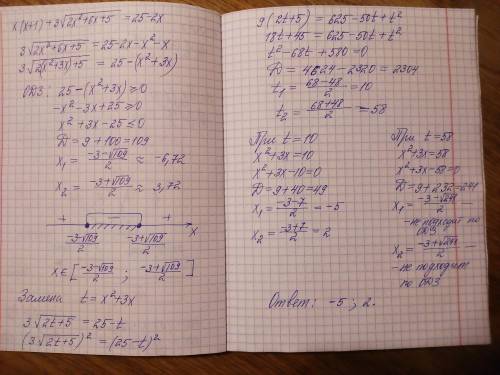 x(x+1)+3√2x²+6x+5 = 25-2x
3√2x²+6x+5 = 25-2x-x²-x
3√2(x²+3x)+5 = 25-(x²+3x)
ОДЗ: 25-(x²+3x)≥0
-x²-3x+25≥0
x²+3x-25≤0
D=9+100=109
x₁ = (-3-√109)/2 ≈ -6,72
x₂ = (-3+√109)/2 ≈ 3,72
+ − +
(-3-√109)/2 (-3+√109)/2 x
x∈[(-3-√109)/2 ; (-3+√109)/2]
Замена t=x²+3x
3√2t+5 = 25-t
(3√2t+5)² = (25-t)²
9(2t+5) = 625-50t+t²
18t+45 = 625-50t+t²
t²-68t+580=0
D = 4624-2320 = 2304
t₁ = (68-48)/2 = 10
t₂ = (68+48)/2 = 58
При t=10
x²+3x=10
x²+3x-10=0
D=9+40=49
x₁ = (-3-7)/2 = -5
x₂ = (-3+7)/2 = 2
При t=58
x²+3x=58
x²+3x-58=0
D=9+232=241
x₁ = (-3-√241)/2 −
-не подходит по
ОДЗ
x₂ = (-3+√241)/2 −
-не подходит
по ОДЗ
Ответ: -5; 2.